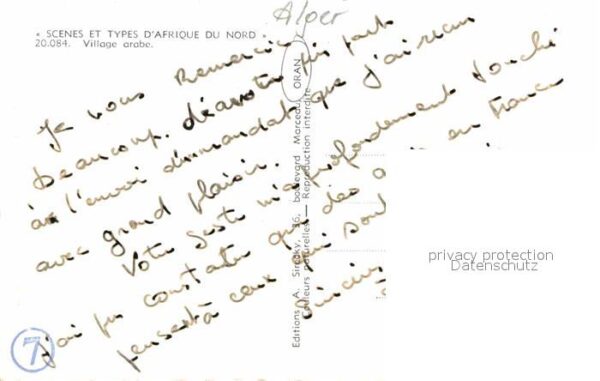 Alger
« SCENES ET TYPES D'AFRIQUE DU NORD »
20.084. Village arabe.
Je vous Remercie
beaucoup, d'avoir pris part
à l'envoi d'un mandat que j'ai reçu
avec grand plaisir.
Votre geste m'a profondement touché
j'ai pu constater que des en France
pensent à ceux qui sont
Editions A. Sirecky, 16, boulevard Marceau, ORAN
Couleurs naturelles — Reproduction interdite
privacy protection
Datenschutz
7